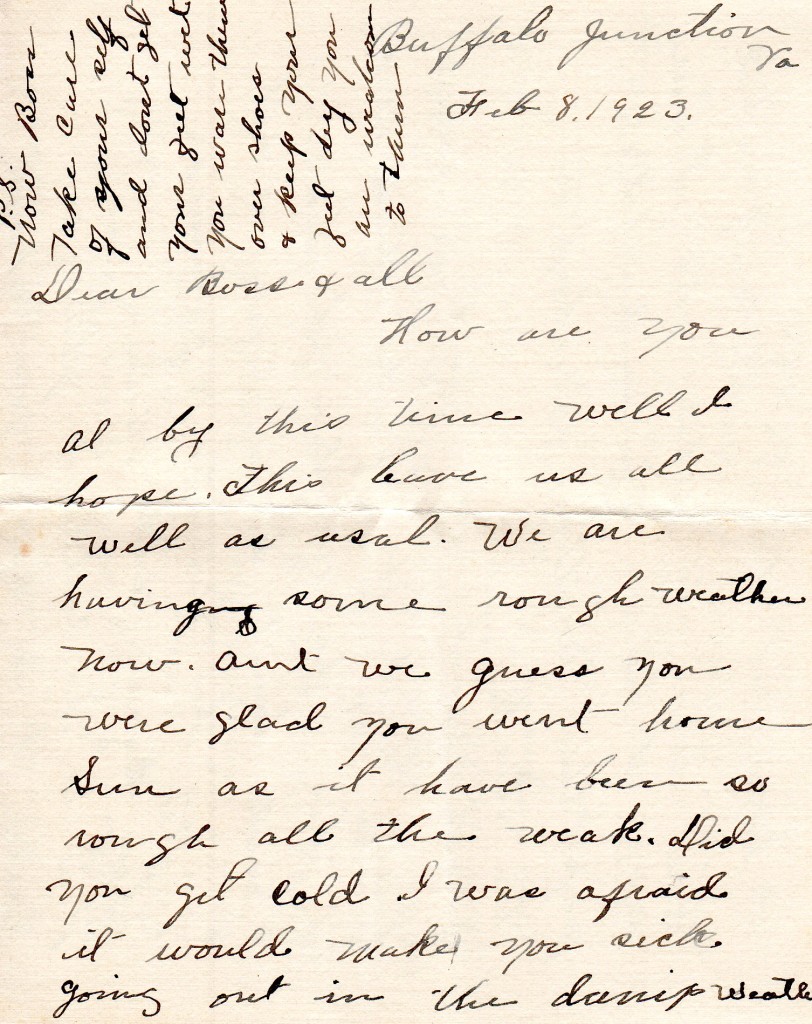 Buffalo Junction
Va
Feb 8. 1923.
Dear Boss & all
How are you
al by this time well I
hope. This leave us all
well as usal. We are
having some rough weather
now. aint we guess you
were glad you went home
Sun as it have been so
rough all the weak. Did
you get cold I was afraid
it would make you sick
going out in the damp weathe
P.S.
Now Boss
Take Care
of your self
and dont get
your feet wet
you ware them
over shoes
& keep your
feet dry you
are welcom
to them